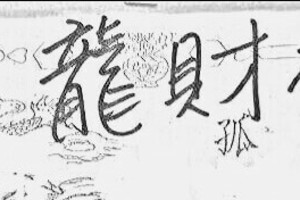 龍財
孤